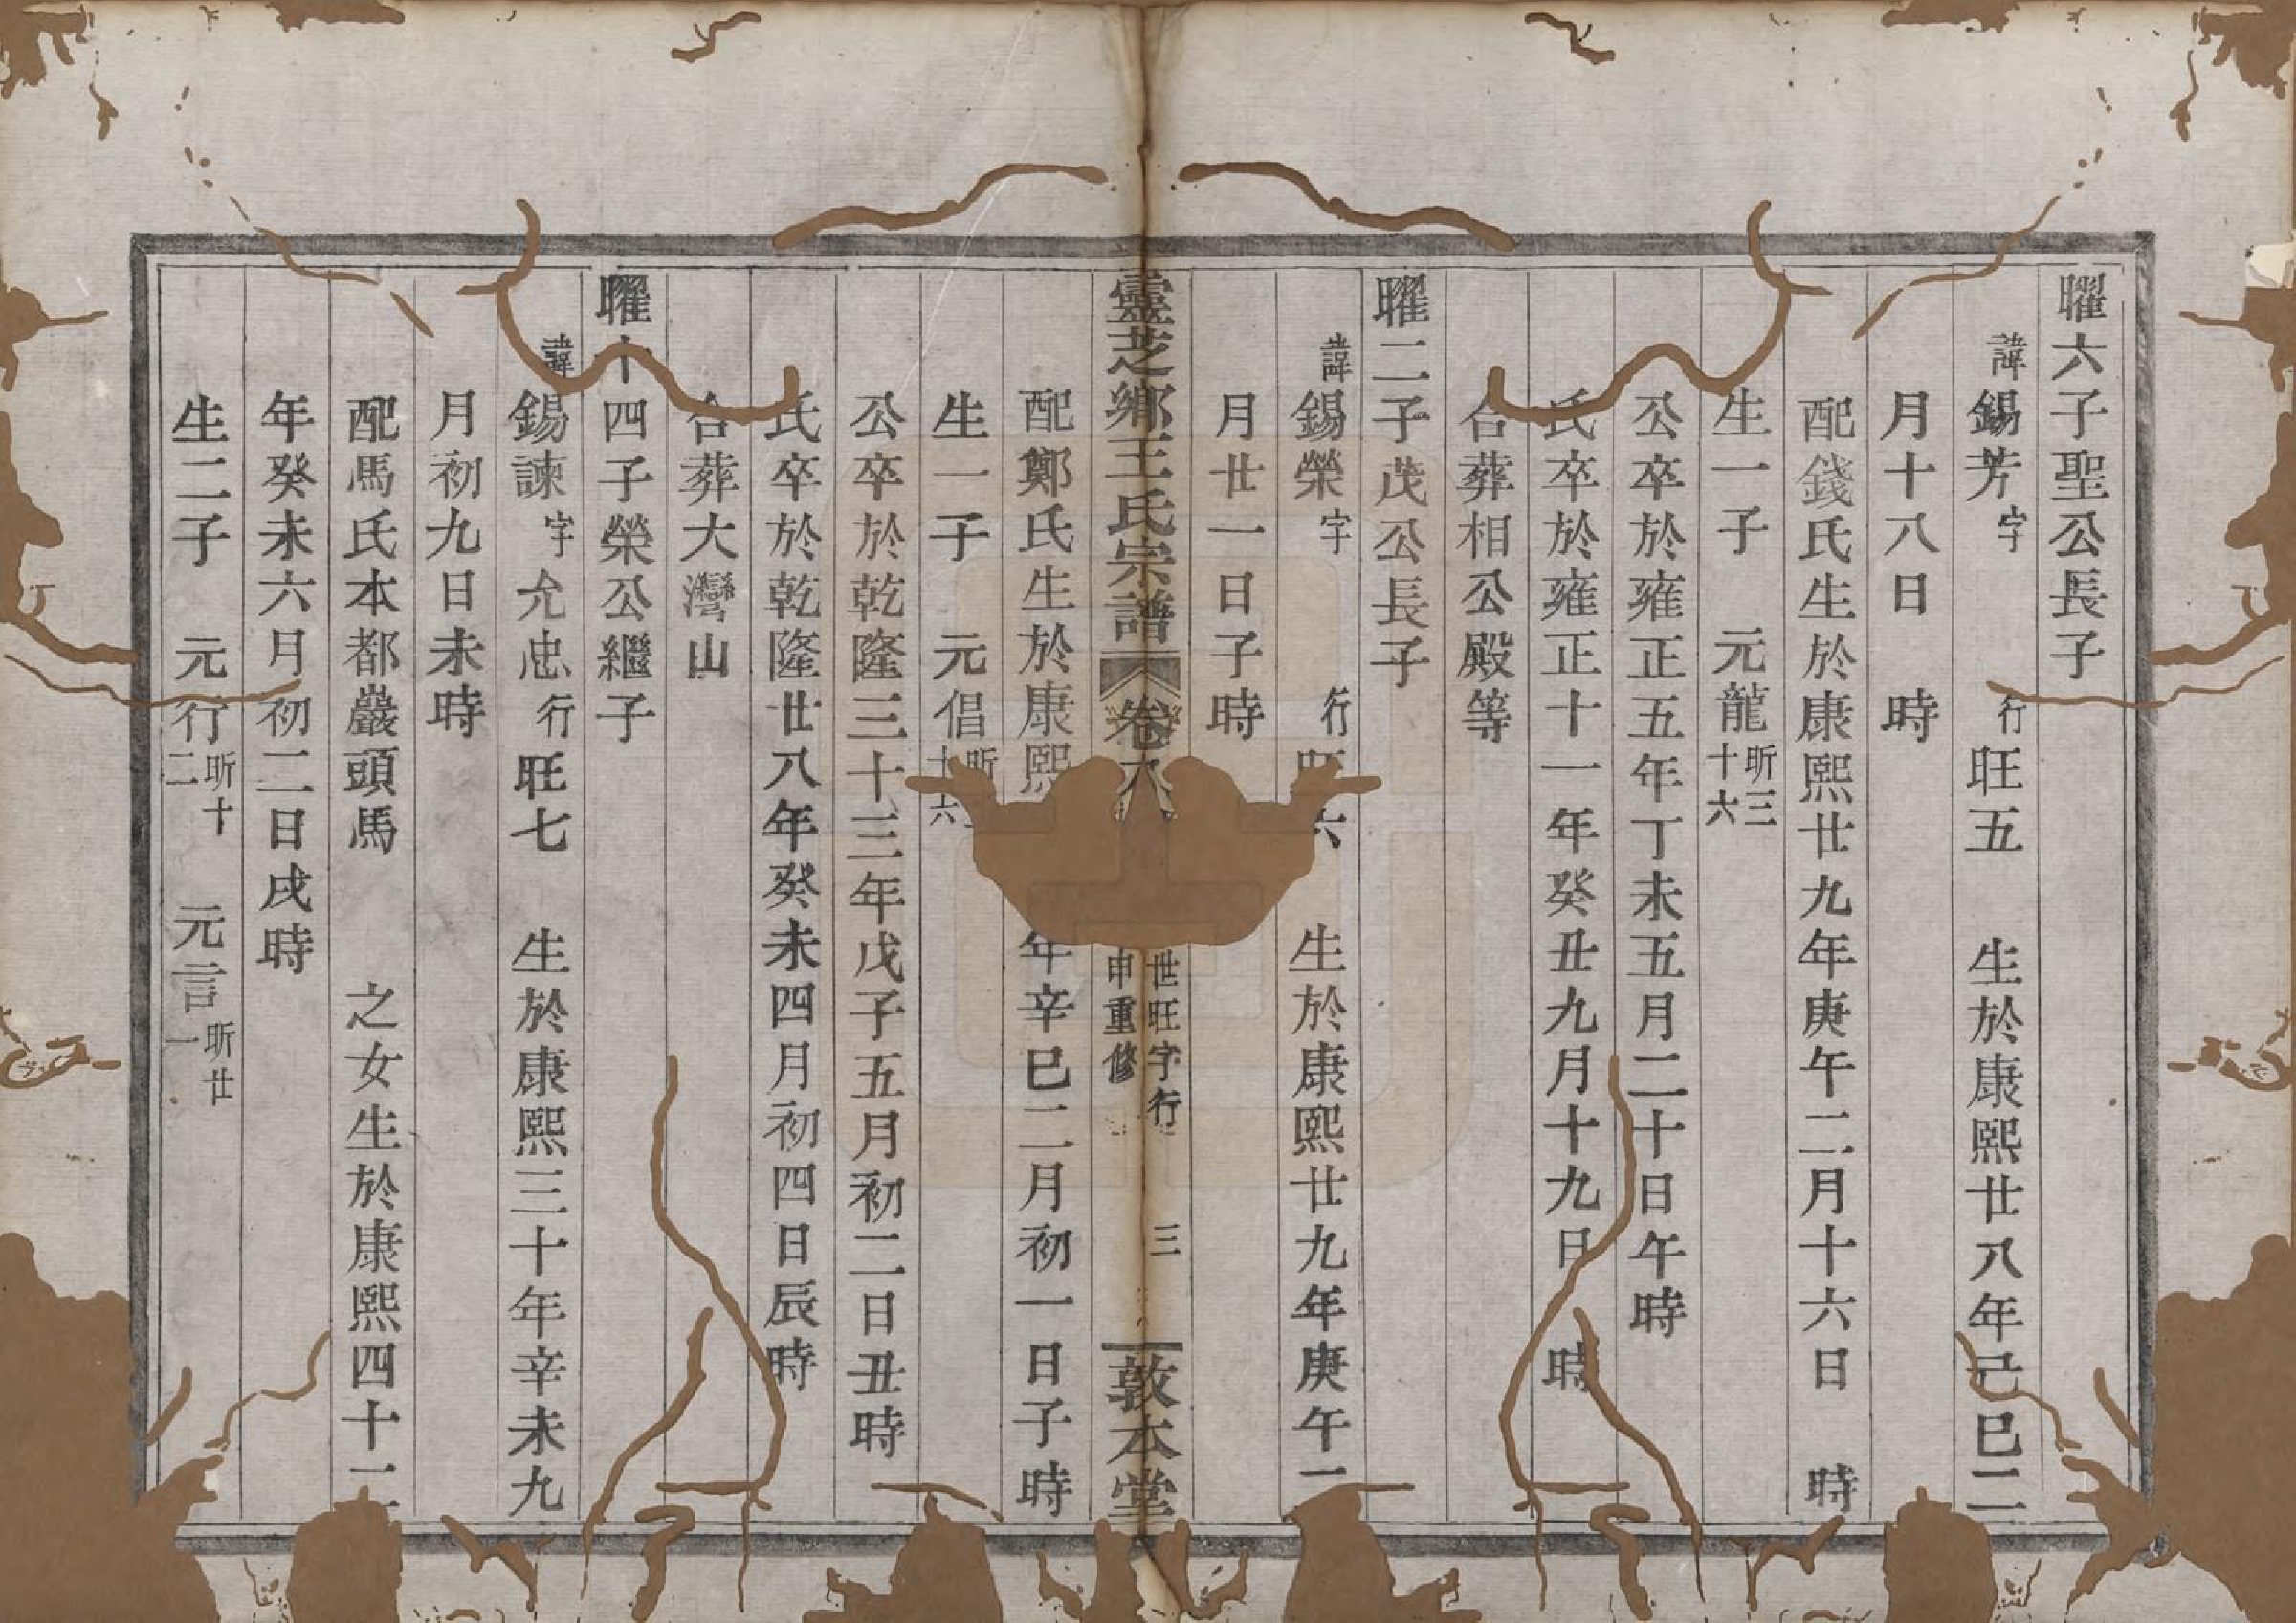 曜六子聖公長子
諱錫芳字 行旺五 生於康熙廿八年己巳二
月十八日 時
配錢氏生於康熙廿九年庚午二月十六日 時
生一子 元龍昕三十六
公卒於雍正五年丁未五月二十日午時
氏卒於雍正十一年癸丑九月十九日 時
合葬相公殿等
曜二子茂公長子
諱錫榮字 行旺六 生於康熙廿九年庚午二
月廿一日子時
靈芝鄉王氏宗譜 卷 世旺字行 申重修 三 敦本堂
配鄭氏生於康熙 年辛巳二月初一日子時
生一子 元倡昕 六
公卒於乾隆三十三年戊子五月初二日丑時
氏卒於乾隆廿八年癸未四月初四日辰時
合葬大灣山
曜十四子榮公繼子
諱錫諫字允忠行旺七 生於康熙三十年辛未九
月初九日未時
配馬氏本都巖頭馬 之女生於康熙四十二
年癸未六月初二日戌時
生二子 元行昕十二 元言昕廿一